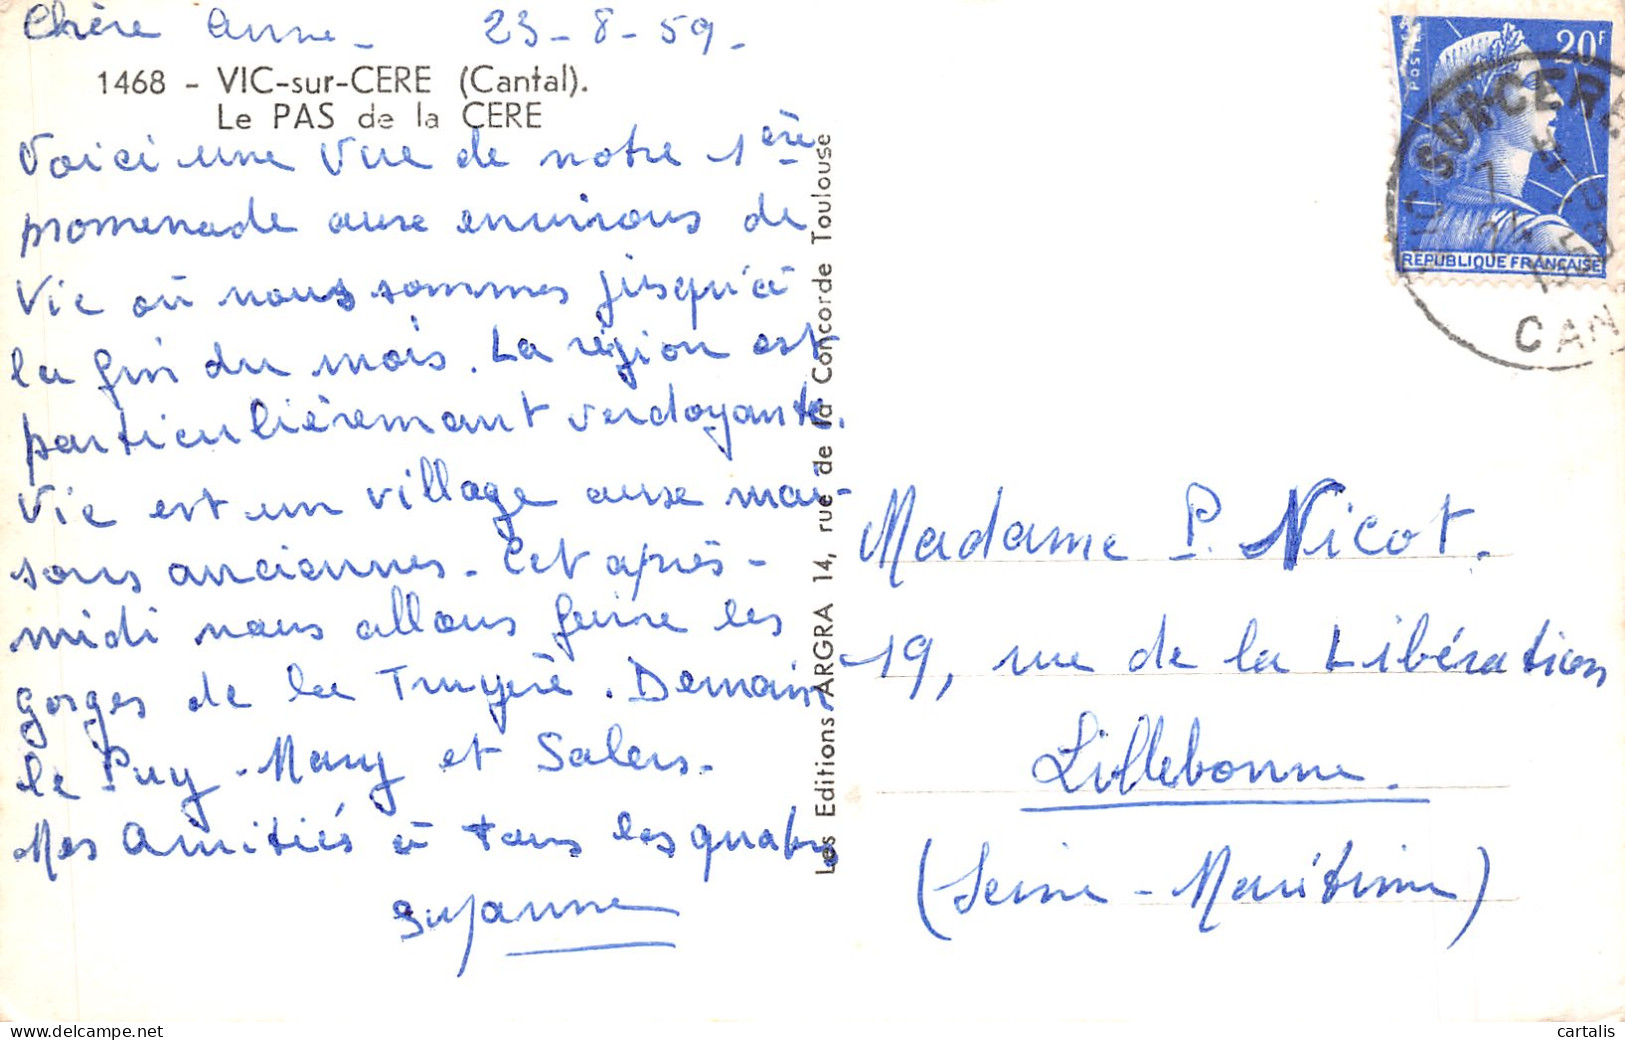 Chère Anne - 23-8-59-
1468 - VIC-sur-CERE (Cantal).
Le PAS de la CERE
Voici une vue de notre 1ère
promenade aux environs de
Vic où nous sommes jusqu'à
la fin du mois. La région est
particulièrement verdoyante.
Vic est un village aux mai-
sons anciennes. Cet après-
midi nous allons faire les
gorges de la Truyère. Demain
le Puy-Mary et Salers.
Mes Amitiés à tous les quatre
Suzanne
Les Editions ARGRA 14, rue de la Concorde Toulouse
POSTES
20F
REPUBLIQUE FRANÇAISE
VIC SUR CERE
CAN
Madame P. Nicot.
19, rue de la Libération
Lillebonne.
(Seine-Maritime)
cartalis